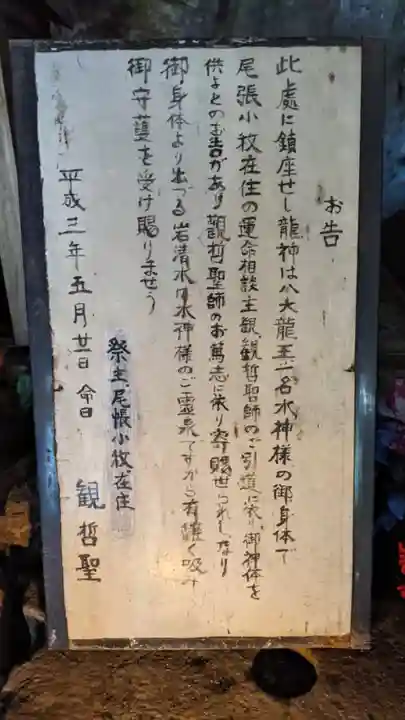 お告
此處に鎮座せし龍神は八大龍王一名水神様の御身体で
尾張小牧在住の運命相談主観、観哲聖師のご引導に依り、御神体を
供よとのお告があり観哲聖師のお篤志に依り寄賜せられしなり
御身体より出づる岩清水は水神様のご霊泉ですから有難く吸み
御守護を受け賜りませう
祭主、尾帳小牧在住
平成三年五月廿一日 命日 観哲聖